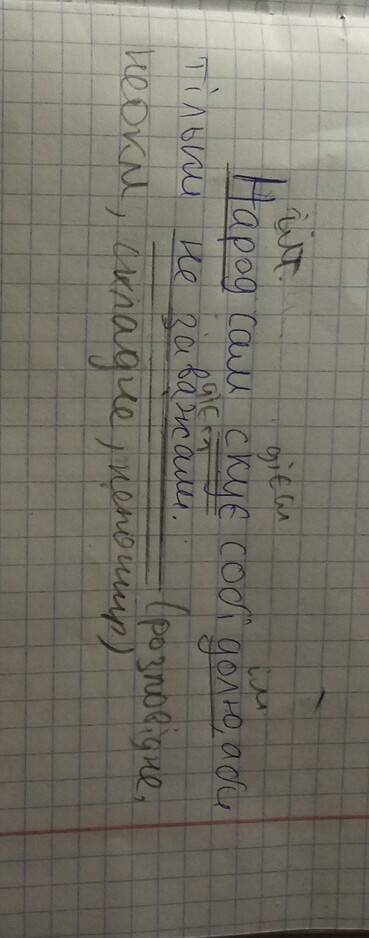 ім. дієсл ім
Народ сам скує собі долю, аби
дієсл
тільки не заважали. (розповідне,
неокл, складне, непошир)